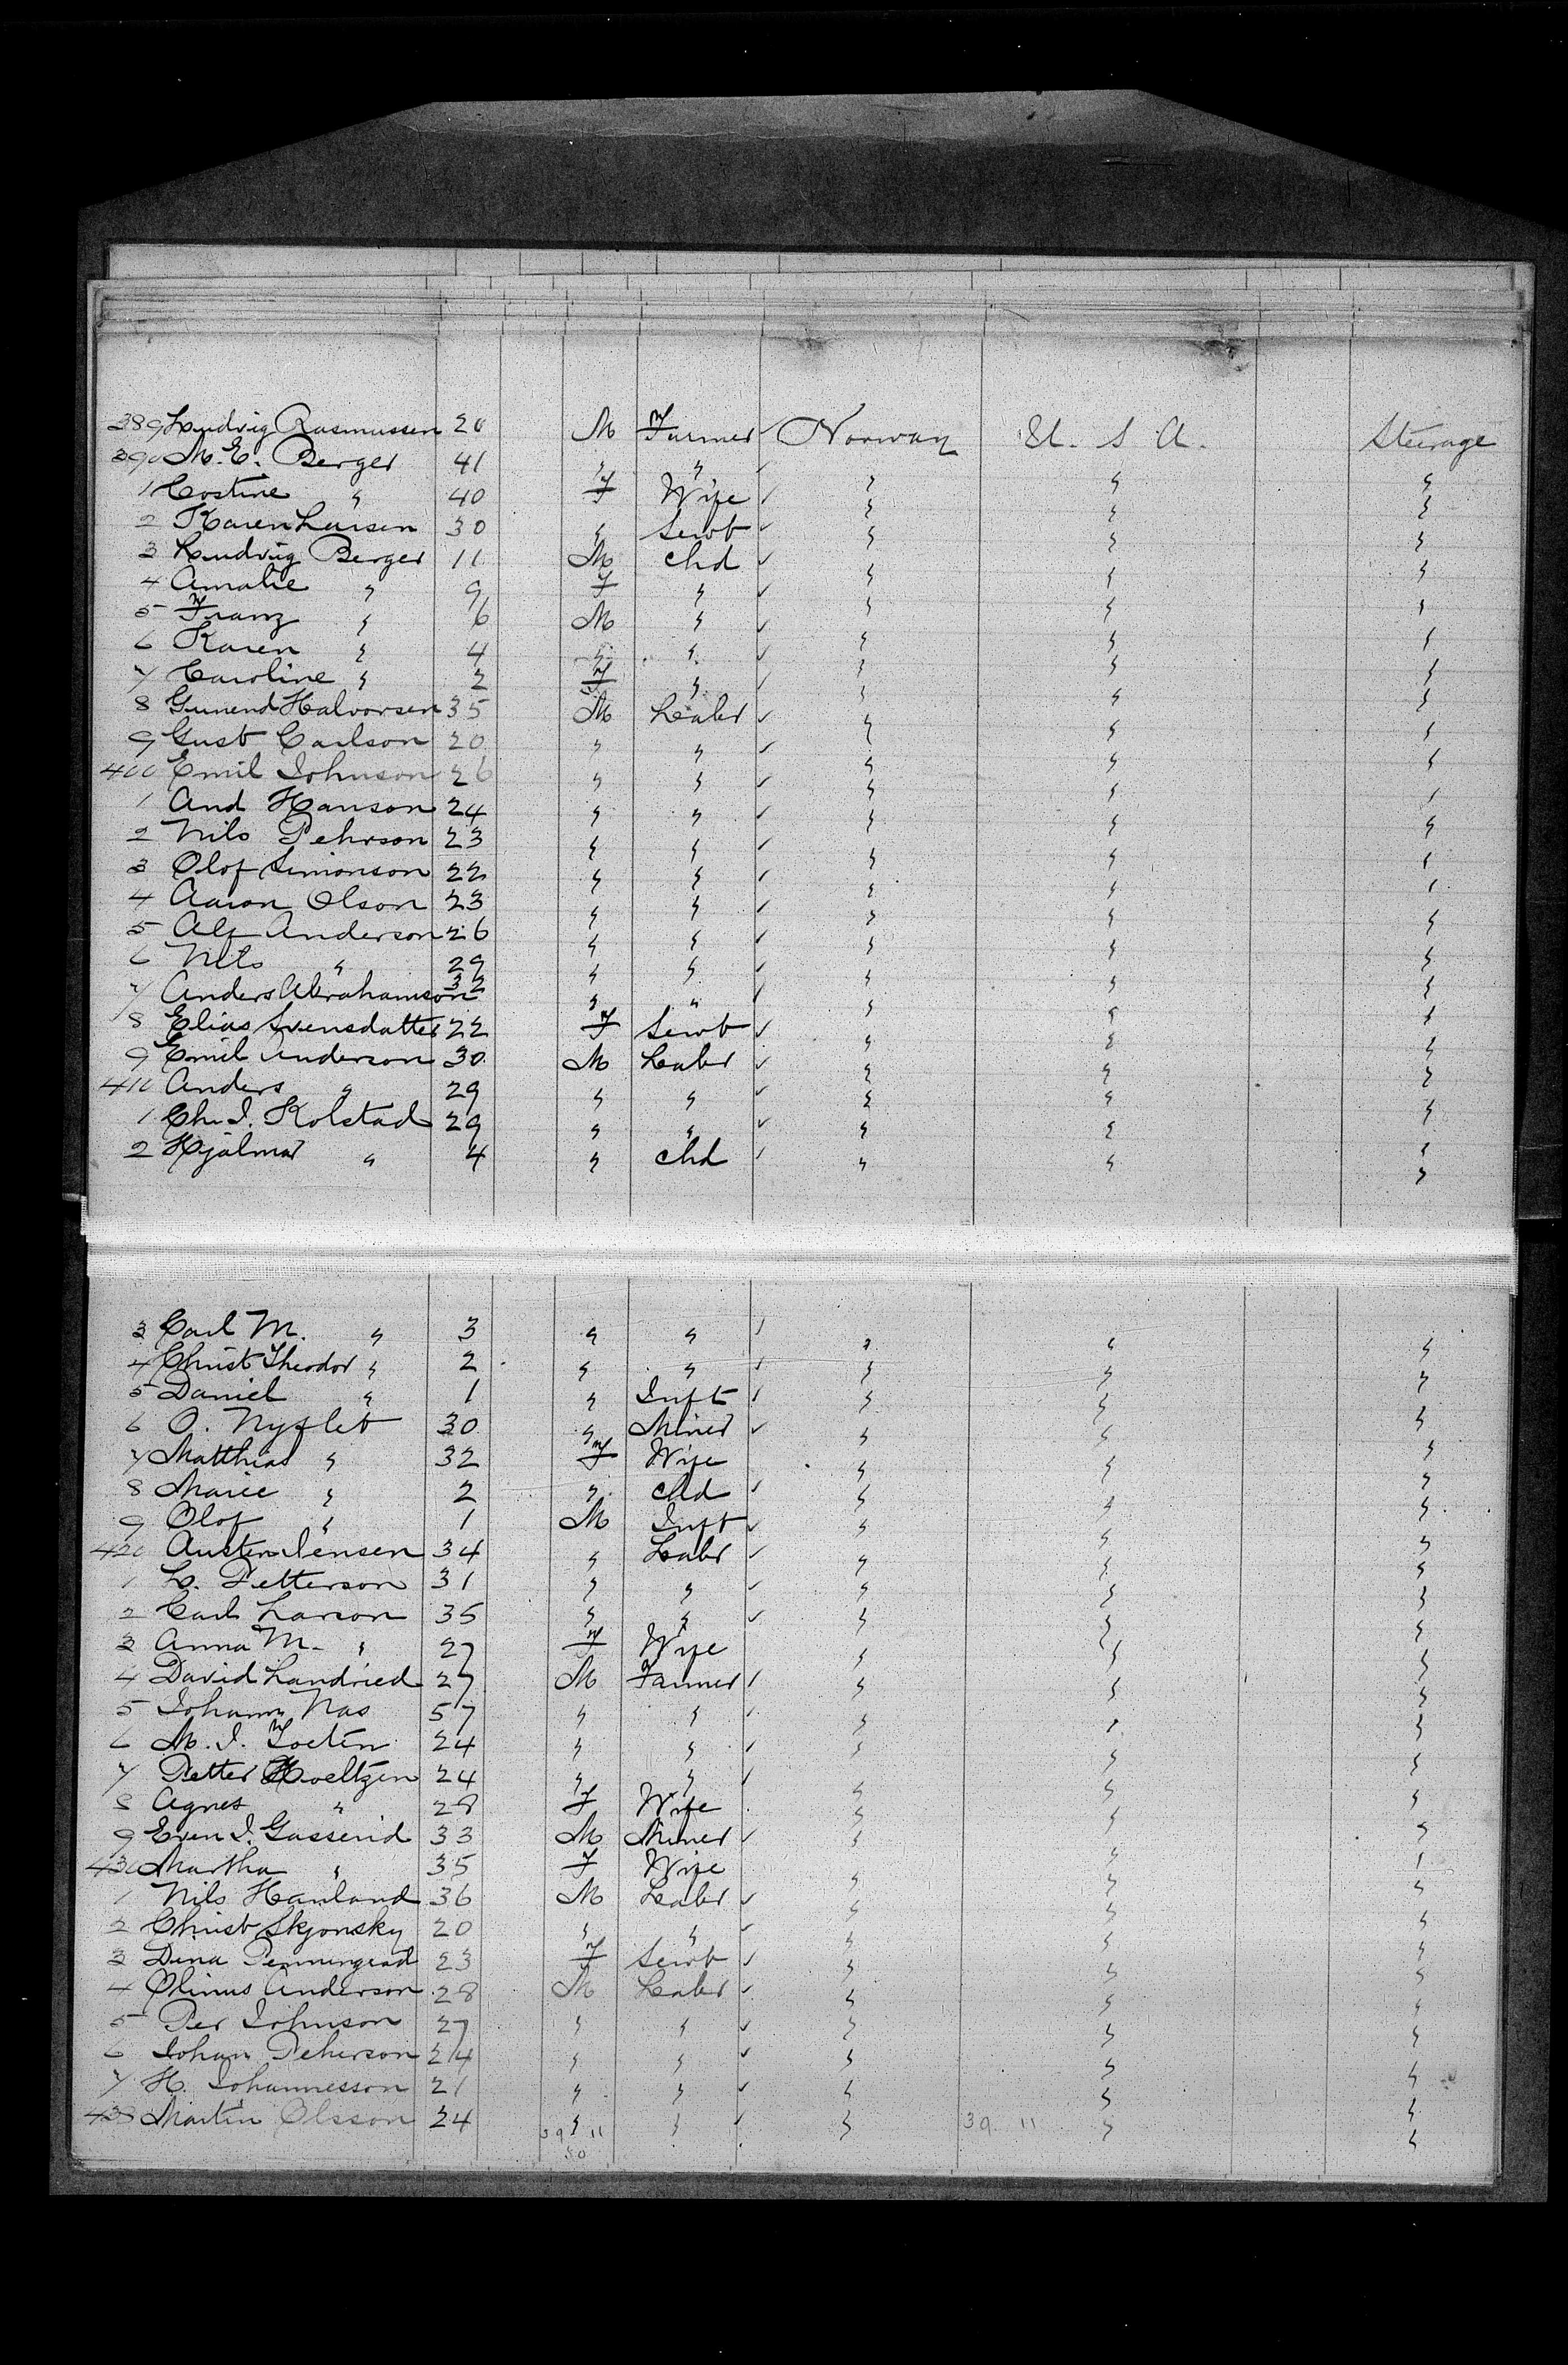 389 Ludvig Rasmussen 20 M Farmer ✓ Norway U. S. A. Steerage
390 M. E. Berger 41 " " ✓ " " "
1 Costine " 40 F Wife ✓ " " "
2 Karen Larsen 30 " Servt ✓ " " "
3 Ludvig Berger 11 M Chd ✓ " " "
4 Amalie " 9 F " ✓ " " "
5 Franz " 6 M " ✓ " " "
6 Karen " 4 " " ✓ " " "
7 Caroline " 2 F " ✓ " " "
8 Gunend Halvorsen 35 M Labr ✓ " " "
9 Gust Carlson 20 " " ✓ " " "
400 Emil Johnson 26 " " ✓ " " "
1 And Hanson 24 " " ✓ " " "
2 Nils Pehrson 23 " " ✓ " " "
3 Olof Simonson 22 " " ✓ " " "
4 Aaron Olson 23 " " ✓ " " "
5 Alf Anderson 26 " " ✓ " " "
6 Nils " 29 " " ✓ " " "
7 Anders Abrahamson 32 " " ✓ " " "
8 Elias Svensdatter 22 F Servt ✓ " " "
9 Emil Anderson 30 M Labr ✓ " " "
410 Anders " 29 " " ✓ " " "
1 Chr. J. Kolstad 29 " " ✓ " " "
2 Hjalmar " 4 " Chd ✓ " " "
3 Carl M. " 3 " " ✓ " " "
4 Christ Theodor " 2 " " ✓ " " "
5 Daniel " 1 " Inft ✓ " " "
6 O. Nyflet 30 " Miner ✓ " " "
7 Matthias " 32 F Wife " " "
8 Marie " 2 " Chd ✓ " " "
9 Olof " 1 M Inft ✓ " " "
420 Austen Jensen 34 " Labr ✓ " " "
1 L. Petterson 31 " " ✓ " " "
2 Carl Larson 35 " " ✓ " " "
3 Anna M. " 27 F Wife " " "
4 David Landried 27 M Farmer ✓ " " "
5 Johann Nas 57 " " ✓ " " "
6 M. J. Toeten 24 " " ✓ " " "
7 Petter Hoeltzen 24 " " ✓ " " "
8 Agnes " 28 F Wife " " "
9 Even J. Gasserid 33 M Miner ✓ " " "
430 Martha " 35 F Wife " " "
1 Nils Hanland 36 M Labr ✓ " " "
2 Christ Skjonsky 20 " " ✓ " " "
3 Dina 23 F Servt ✓ " " "
4 Olinus Anderson 28 M Labr ✓ " " "
5 Per Johnson 27 " " ✓ " " "
6 Johan Peherson 24 " " ✓ " " "
7 H. Johannesson 21 " " ✓ " " "
438 Martin Olsson 24 " " ✓ " " "
39 11 39 11
50